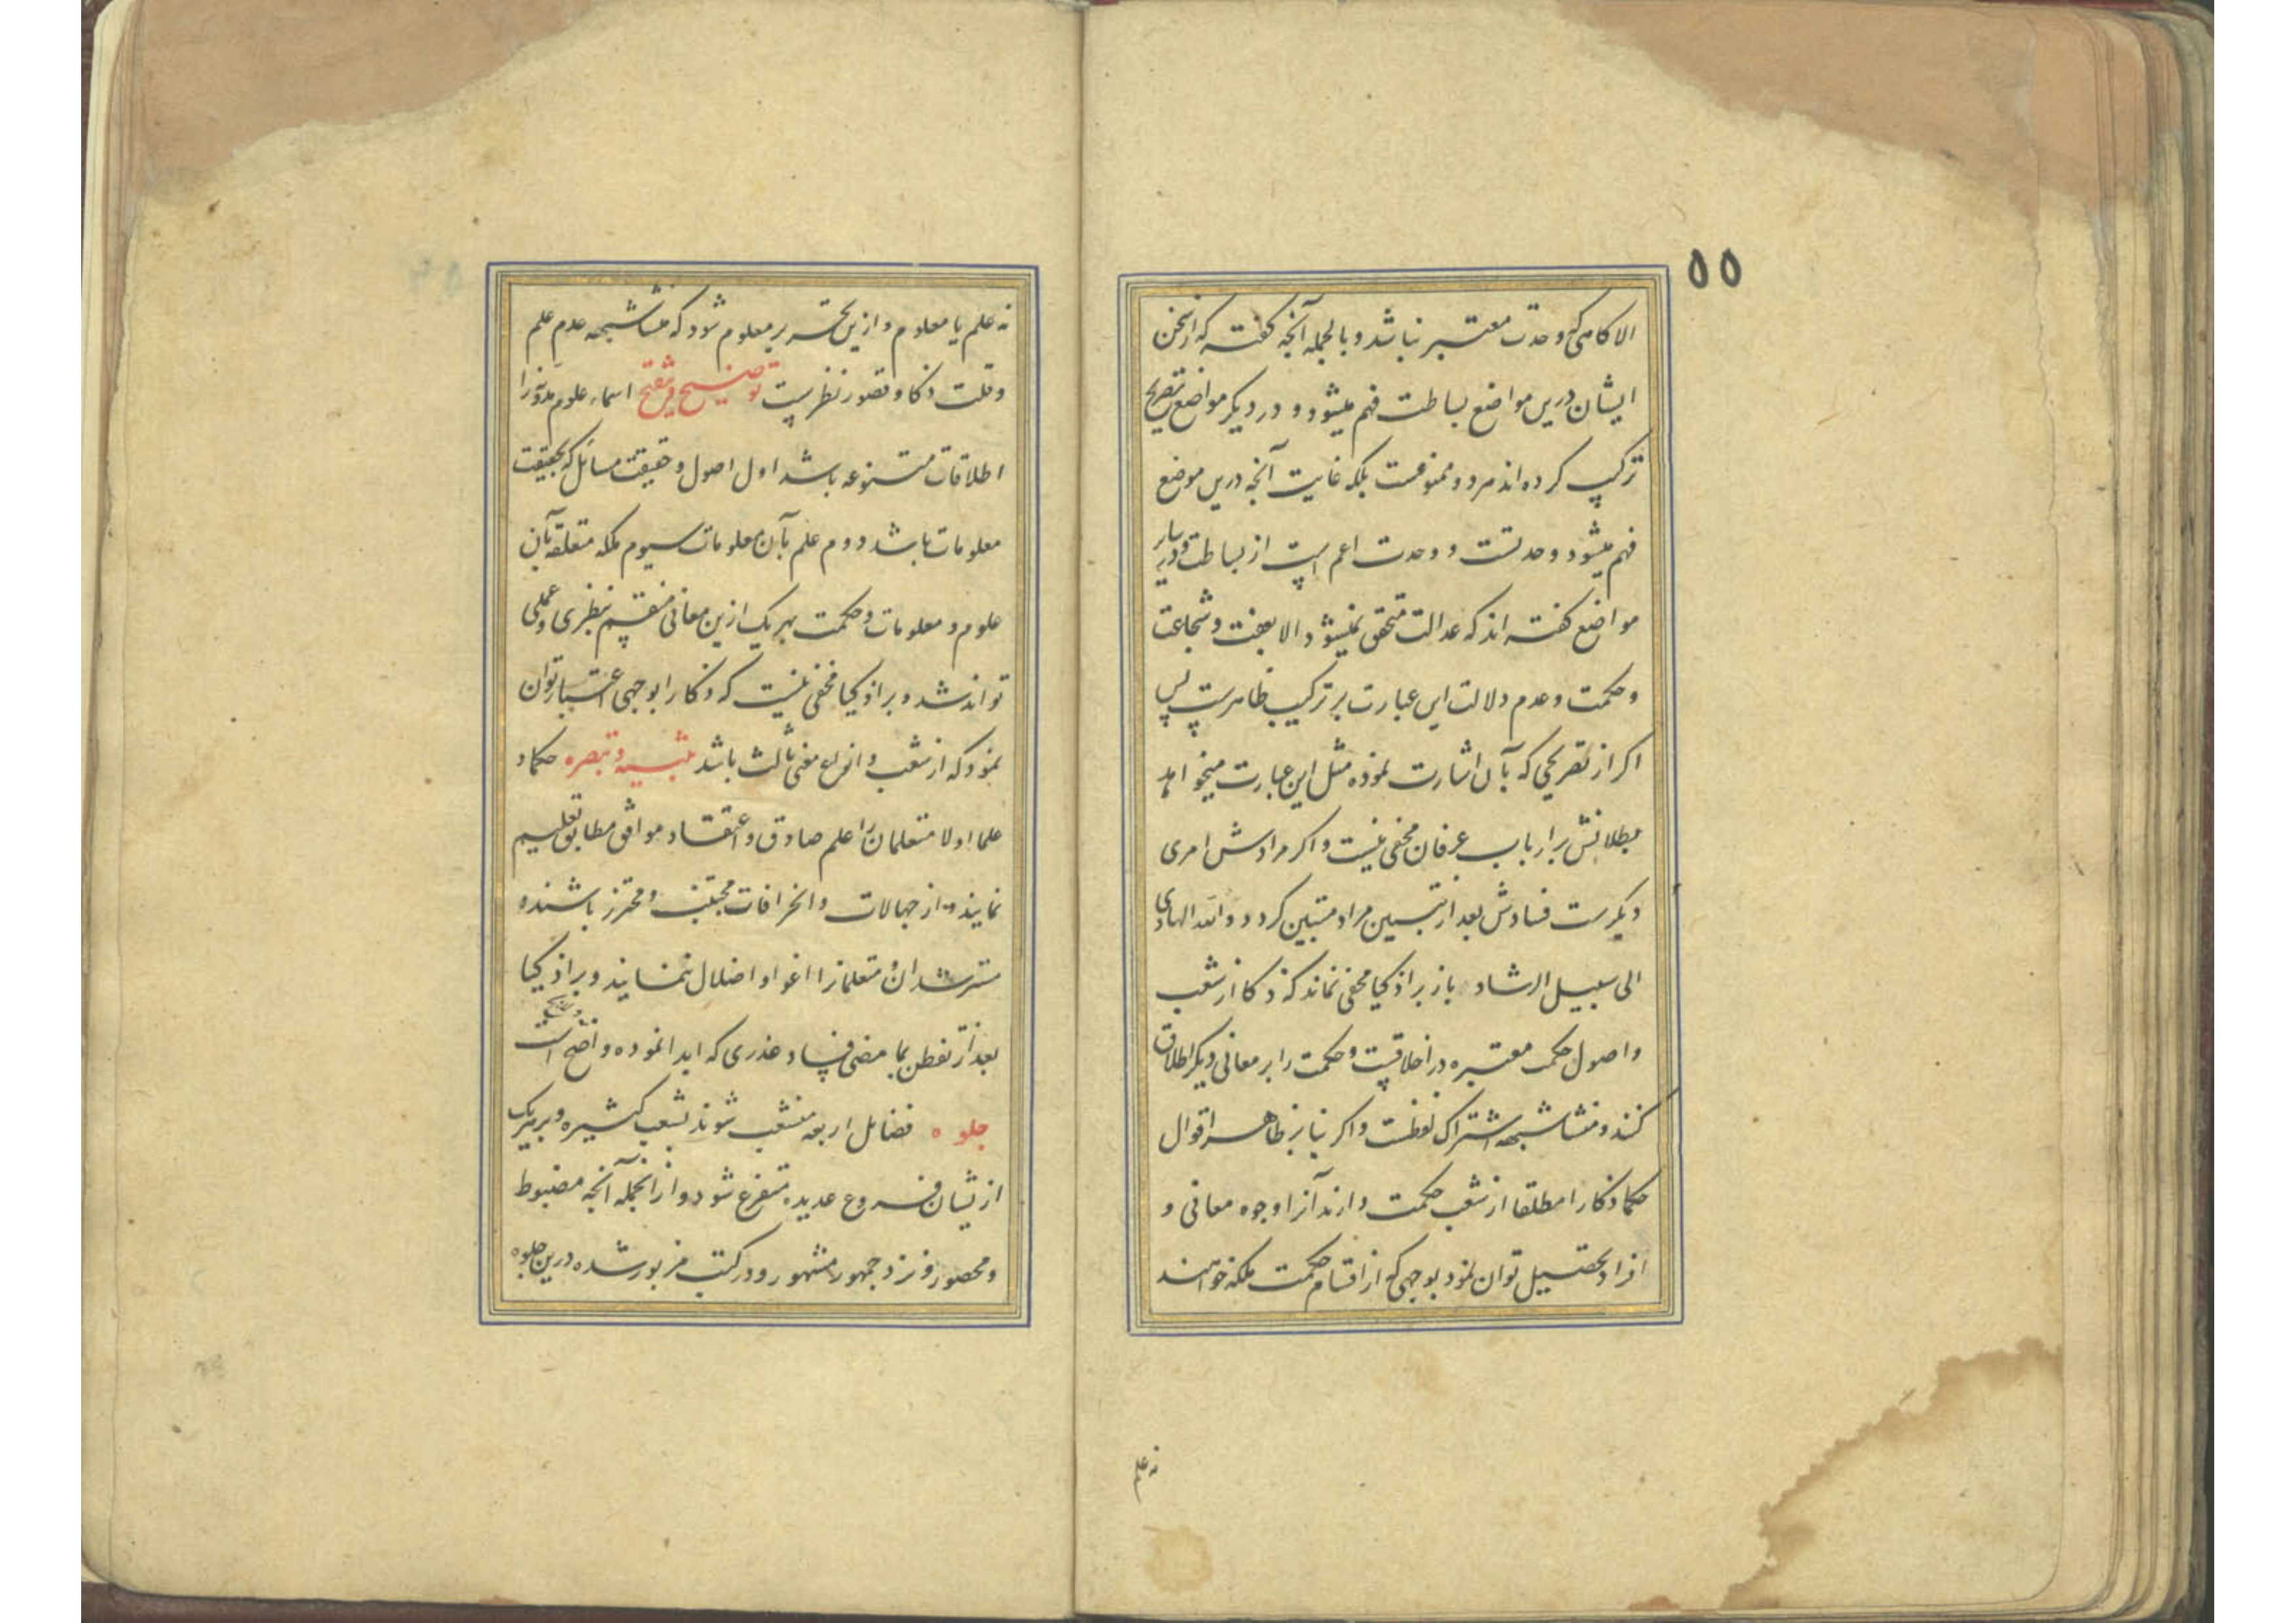 ۵۵
الا کاهی که وحدت معتبر نباشد و بالجمله آنچه کفته که از سخن
ایشان درین مواضع بساطت فهم میشود و در دیکر مواضع تصریح
ترکیب کرده اند مردود و ممنوعست بلکه غایت آنچه درین موضع
فهم میشود وحدتست و وحدت اعم است از بساطت و در سایر
مواضع کفته اند که عدالت متحقق نمیشود الا بعفت و شجاعت
و حکمت و عدم دلالت این عبارت بر ترکیب ظاهرست پس
اکر از تصریحی که بآن اشارت نموده مثل این عبارت میخواهد
بطلانش بر ارباب عرفان مخفی نیست و اکر مرادش امری
دیکرست فسادش بعد از تبیین مراد متبین کردد و الله الهادی
الی سبیل الرشاد باز بر اذکیا مخفی نماند که ذکا از شعب
و اصول حکمت معتبره در اخلاقیست و حکمت را بر معانی دیکر اطلاق
کنند و منشا شبهه اشتراک لفظست و اکر بنا بر ظاهر اقوال
حکما ذکا را مطلقا از شعب حکمت دارند آنرا وجوه معانی و
افراد تحصیل توان نمود بوجهی که از اقسام حکمت ملکه خواهند
نه علم
نه علم یا معلوم و ازین تحریر معلوم شود که منشا شبهه عدم علم
و قلت ذکا و قصور نظرست توضیح و تنقیح اسماء علوم مدونه را
اطلاقات متنوعه باشد اول اصول و حقیقت مسائل که بحقیقت
معلومات باشد دوم علم بآن معلومات سیوم ملکه متعلقه بآن
علوم و معلومات و حکمت بهر یک ازین معانی منقسم بنظری و عملی
تواند شد و بر اذکیا مخفی نیست که ذکا را بوجهی اعتبار توان
نمود که از شعب و انواع معنی ثالث باشد تنبیه و تبصره حکما و
علما اولا متعلمان را علم صادق و اعتقاد موافق مطابق تعلیم
نمایند و از جهالات و انحرافات مجتنب و محترز باشند و
مسترشدان و متعلمانرا اغوا و اضلال ننمایند و بر اذکیا
بعد از تفطن بما مضی فساد عذری که ابدا نموده واضح است
جلوه فضایل اربعه منشعب شوند بشعب کثیره و بر هریک
از یشان فروع عدیده متفرع شود و از انجمله آنچه مضبوط
و محصور و نزد جمهور مشهور و در کتب مزبور شده درین جلوه